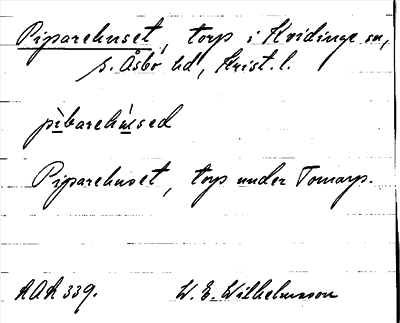 Piparehuset, torp i Kvidinge sn,
S. Åsbo hd, Krist. l.
pìbarehùsed
Piparehuset, torp under Tomarp.
AOA 339. W. E. Wilhelmsson